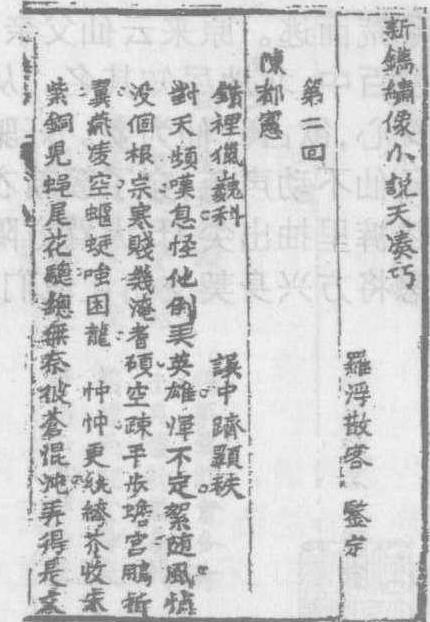 新鐫繡像小說天湊巧
羅浮散客 鑒定
第二回
陳都憲
錯裡獵巍科 誤中躋顯秩
對天頻嘆息怪他倒弄英雄渾不定絮随風
没個根宗寒賤幾淹耆碩空疎平步蟾宮鵬折
翼燕凌空蝘蜓嗤困龍 忡忡更紈綺芥收朱
紫銅兒蝇尾花驄總無奈彼蒼混沌弄得是